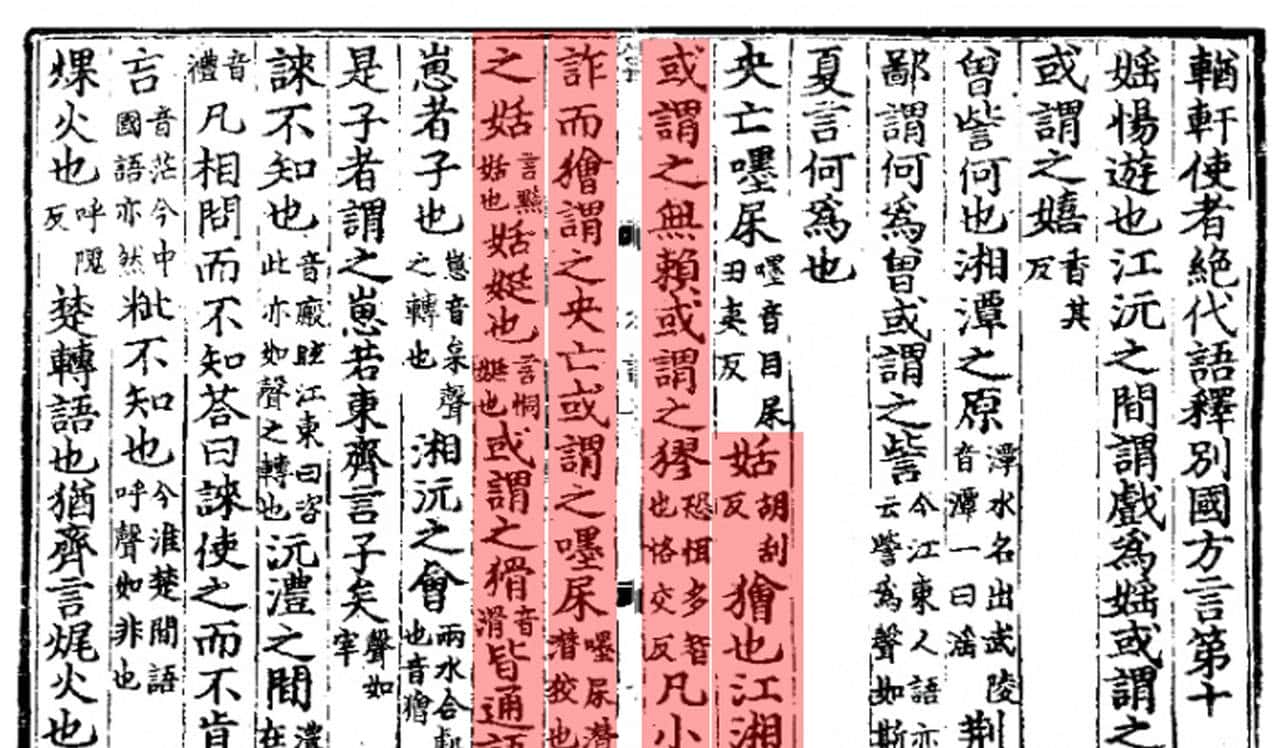 輶軒使者絶代語釋別國方言第十
媱愓遊也江沅之間謂戲為媱或謂之
或謂之嬉香其反
曾訾何也湘潭之原潭水名出武陵音潭一曰淫荆
鄙謂何為曾或謂之訾今江東人語亦云訾為聲如斯
夏言何為也
央亡嚜尿嚜音目尿丑夷反姡胡刮反獪也江湘
或謂之無賴或謂之㺒恐㥘多智也恪交反凡小
詐而獪謂之央亡或謂之嚜尿嚜尿潛潛狡也
之姡言黠姡也姡娗也言恫娗也或謂之猾音滑皆通語
崽者子也崽音枲聲之轉也湘沅之會兩水合處也音獪
是子者謂之崽若東齊言子矣聲如宰
誺不知也音癡眩江東曰咨此亦如聲之轉也沅澧之間澧在
音禮凡相問而不知荅曰誺使之而不肯
言音茫今中國語亦然粃不知也今淮楚間語呼聲如非也
㷄火也呼隗反楚轉語也猶齊言㶽火也